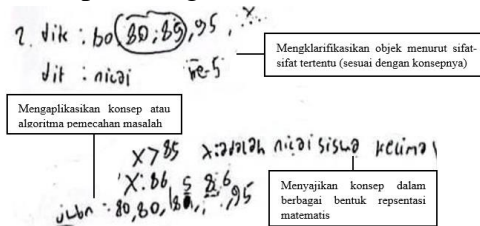 2. dik : 60, 80, 85, 95, x
Mengklarifikasikan objek menurut sifat-
sifat tertentu (sesuai dengan konsepnya)
dit : nilai ke-5
Mengaplikasikan konsep atau
algoritma pemecahan masalah
x > 85 x : adalah nilai siswa kelima
x : 86
Menyajikan konsep dalam
berbagai bentuk repsentasi
matematis
80, 80, 95